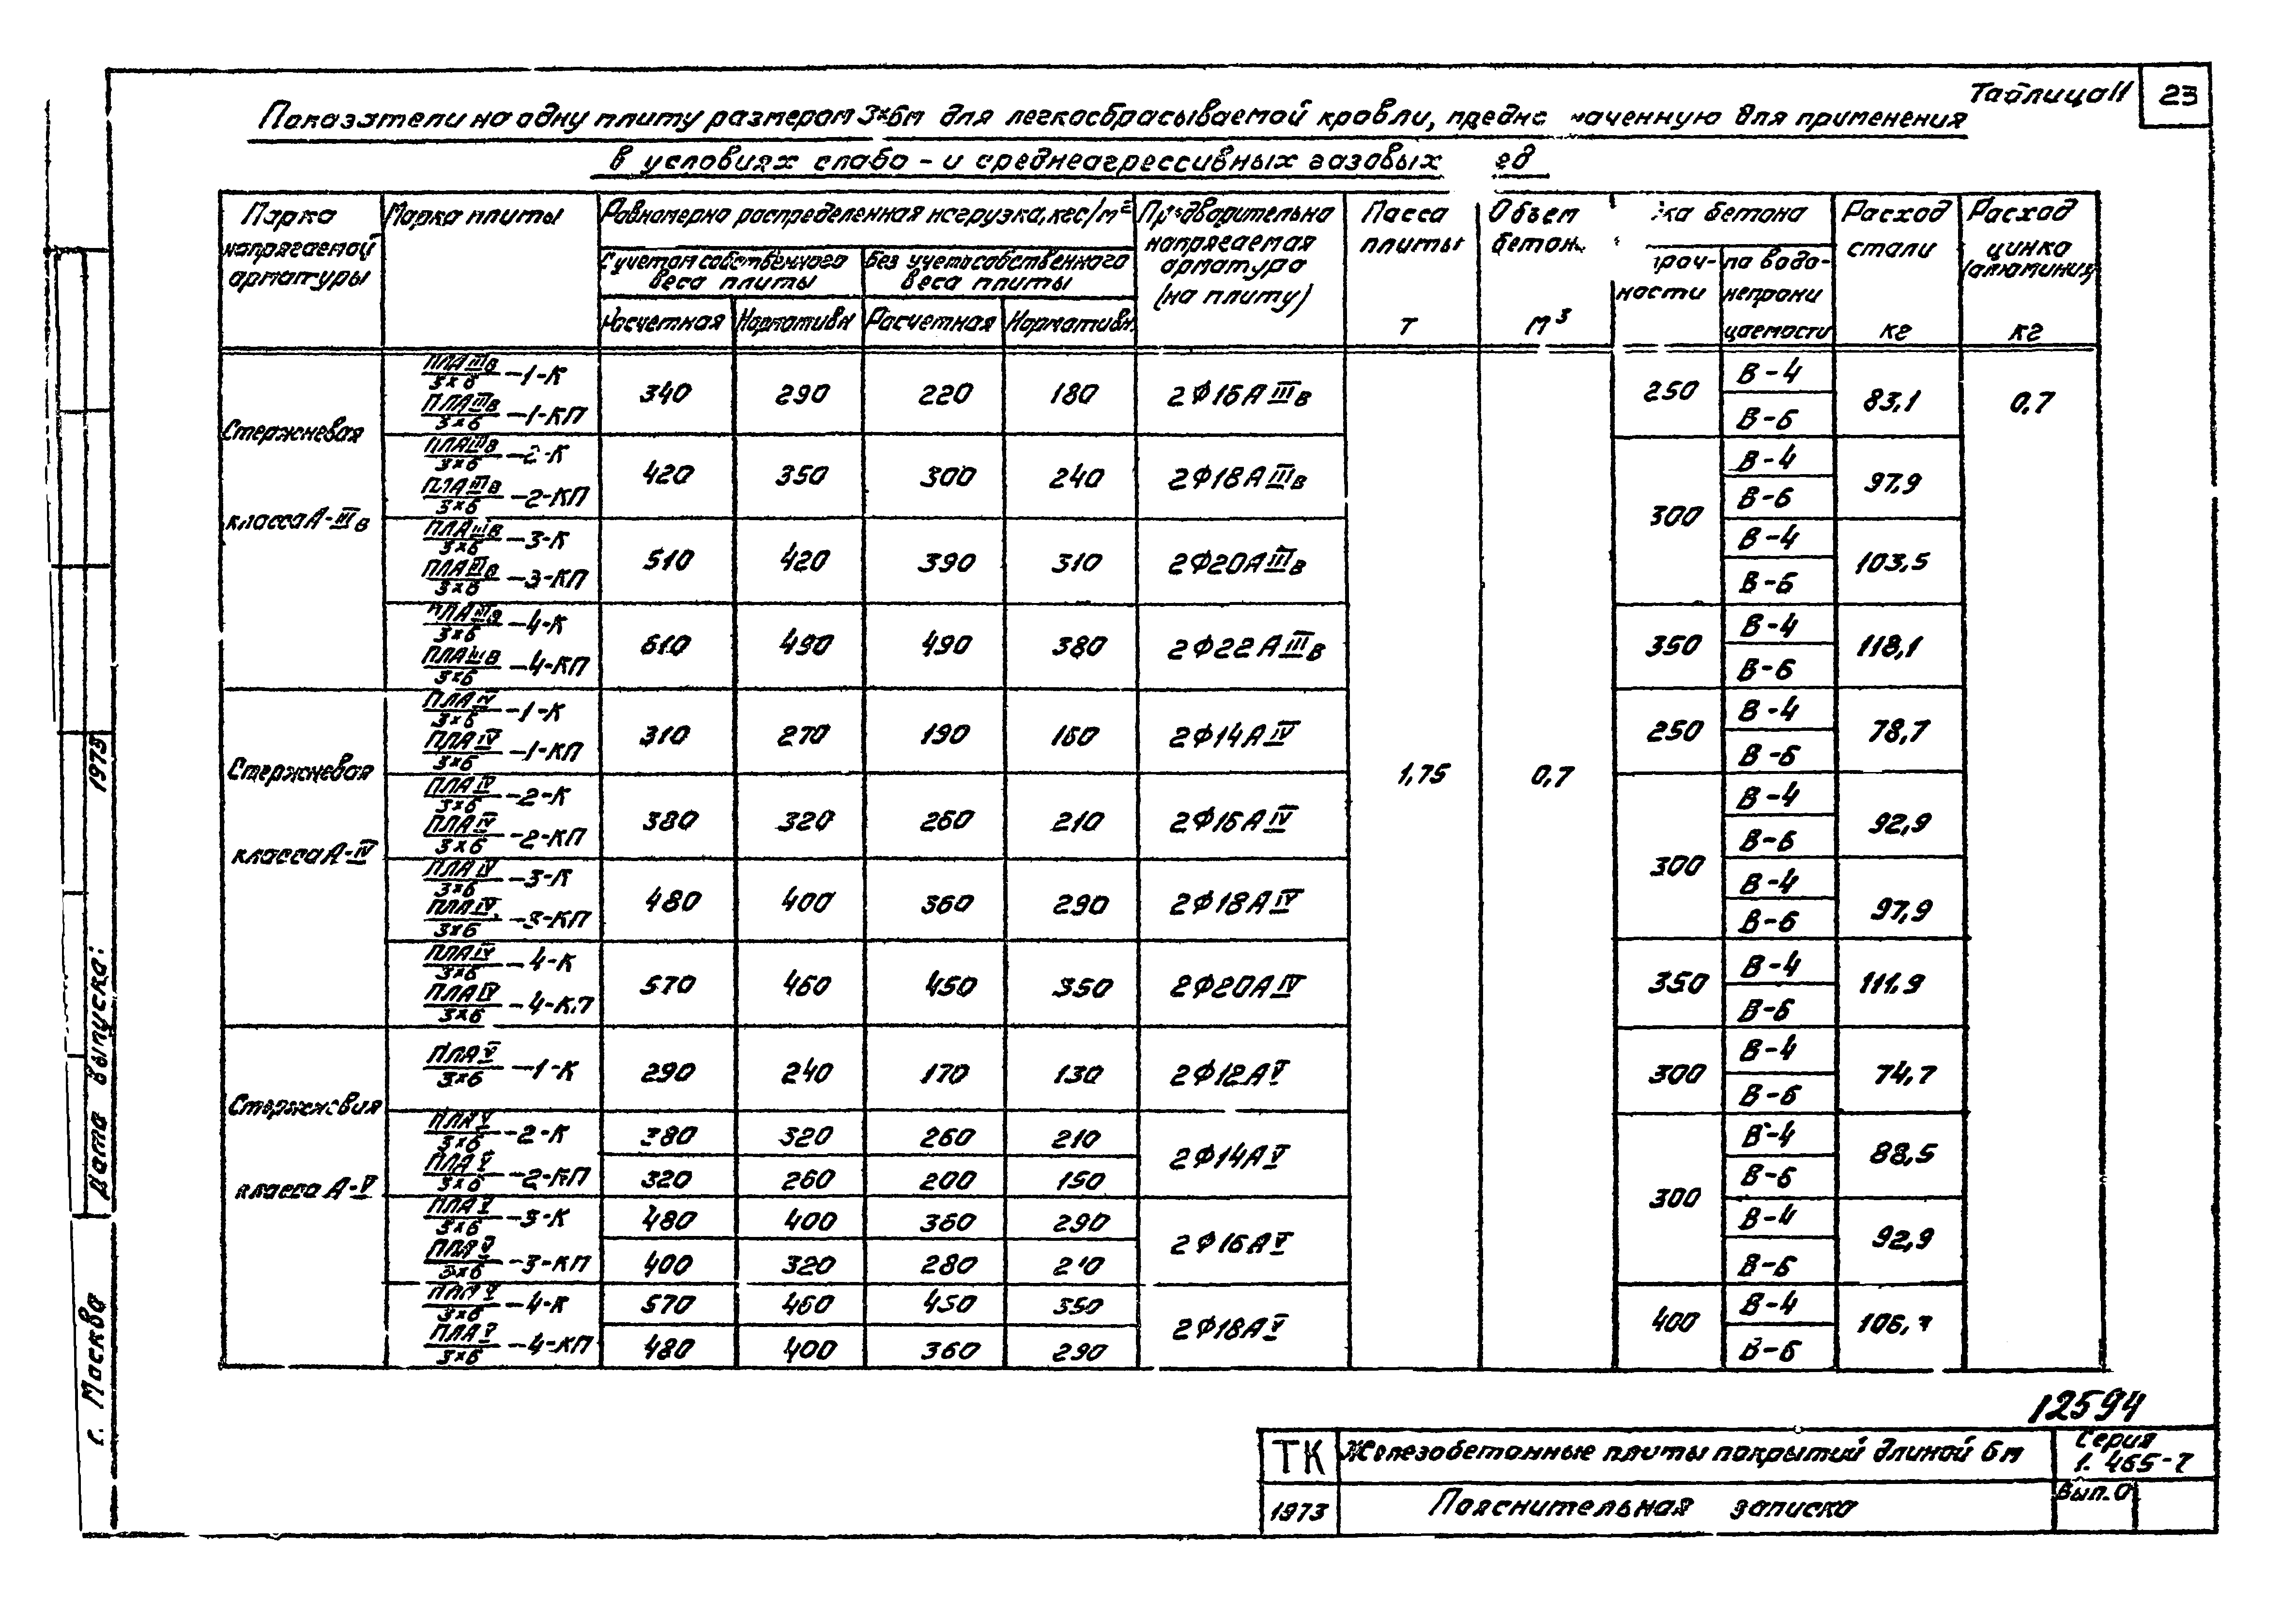 Таблица 11
23
Показатели на одну плиту размером 3×6м для легкосбрасываемой кровли, предна наченную для применения
в условиях слабо - и среднеагрессивных газовых
Марка напрягаемой арматуры
Марка плиты
Равномерно распределенная нагрузка, кгс/м²
С учетом собственного веса плиты
Без учета собственного веса плиты
Расчетная
Нормативн
Расчетная
Нормативн.
Предварительно напрягаемая арматура (на плиту)
Масса плиты т
Объем бетон. м³
ка бетона
проч-ности
по водо-непрони цаемости
Расход стали кг
Расход цинка (алюминия) кг
Стержневая класса А-IIIв
ПЛАIIIв/3×6 -1-К
ПЛАIIIв/3×6 -1-КП
340 290 220 180 2Ф16АIIIв 250 В-4 В-6 83,1 0,7
ПЛАIIIв/3×6 -2-К
ПЛАIIIв/3×6 -2-КП
420 350 300 240 2Ф18АIIIв 300 В-4 В-6 97,9
ПЛАIIIв/3×6 -3-К
ПЛАIIIв/3×6 -3-КП
510 420 390 310 2Ф20АIIIв В-4 В-6 103,5
ПЛАIIIв/3×6 -4-К
ПЛАIIIв/3×6 -4-КП
610 490 490 380 2Ф22АIIIв 350 В-4 В-6 118,1
Стержневая класса А-IV
ПЛАIV/3×6 -1-К
ПЛАIV/3×6 -1-КП
310 270 190 160 2Ф14АIV 1,75 0,7 250 В-4 В-6 78,7
ПЛАIV/3×6 -2-К
ПЛАIV/3×6 -2-КП
380 320 260 210 2Ф16АIV 300 В-4 В-6 92,9
ПЛАIV/3×6 -3-К
ПЛАIV/3×6 -3-КП
480 400 360 290 2Ф18АIV В-4 В-6 97,9
ПЛАIV/3×6 -4-К
ПЛАIV/3×6 -4-КП
570 460 450 350 2Ф20АIV 350 В-4 В-6 111,9
Стержневая класса А-V
ПЛАV/3×6 -1-К
290 240 170 130 2Ф12АV 300 В-4 В-6 74,7
ПЛАV/3×6 -2-К 380 320 260 210 2Ф14АV 300 В-4 88,5
ПЛАV/3×6 -2-КП 320 260 200 150 В-6
ПЛАV/3×6 -3-К 480 400 360 290 2Ф16АV В-4 92,9
ПЛАV/3×6 -3-КП 400 320 280 210 В-6
ПЛАV/3×6 -4-К 570 460 450 350 2Ф18АV 400 В-4
ПЛАV/3×6 -4-КП 480 400 360 290 В-6
г. Москва Дата выпуска: 1973
12594
ТК
Железобетонные плиты покрытий длиной 6м
Серия 1.465-7
1973
Пояснительная записка
Вып. 0